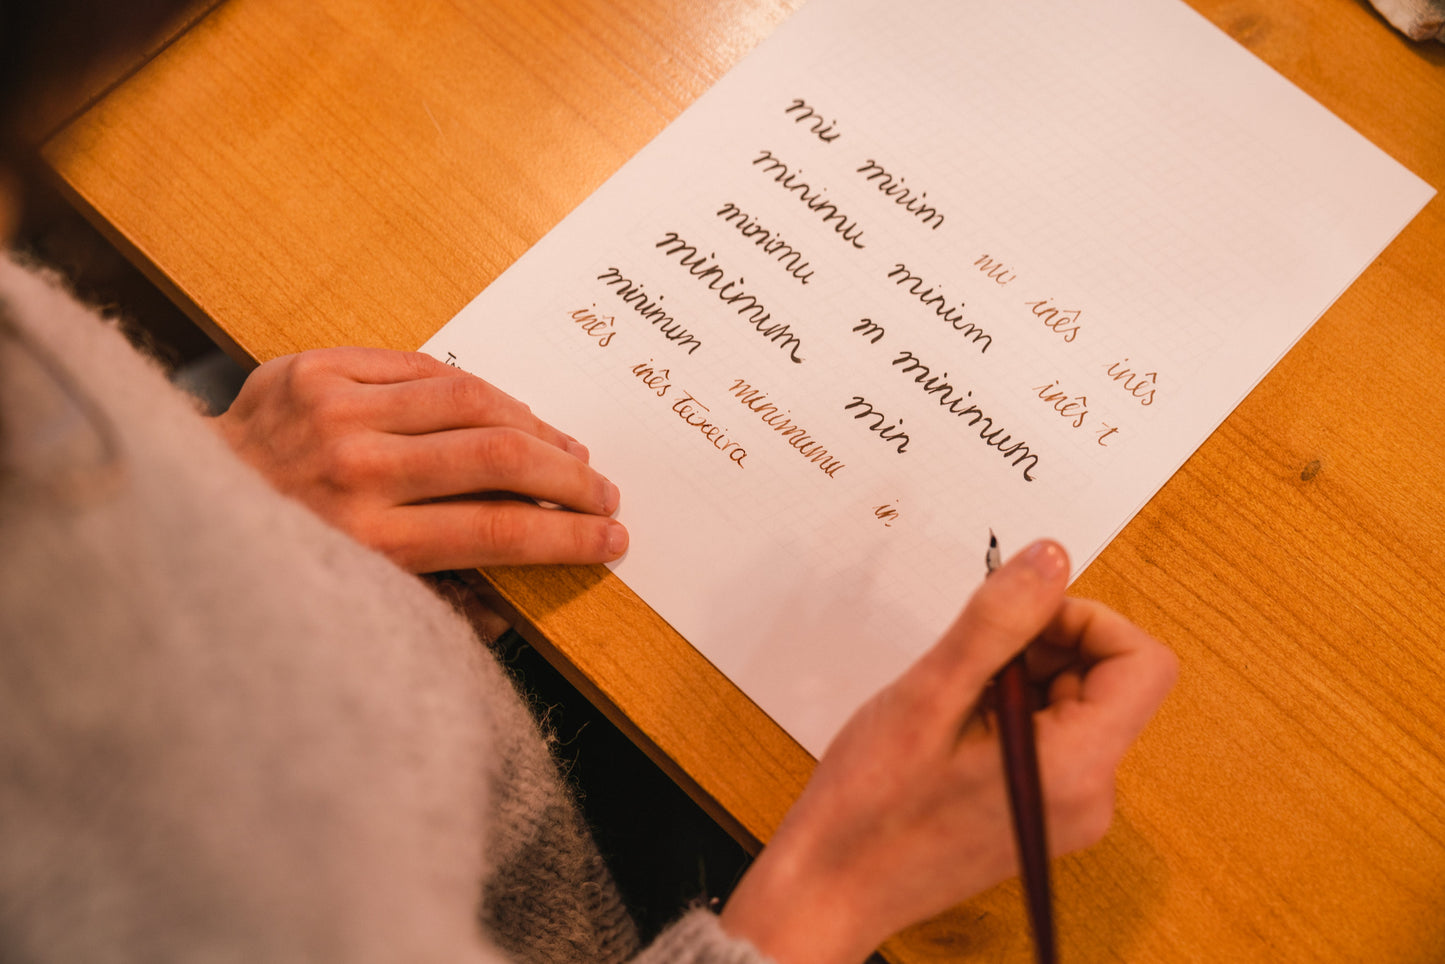 miu mirim mi inês inês
minimu minium inês t
minimu m minimum
minimum min
minimum minimumu in
inês inês Teixeira